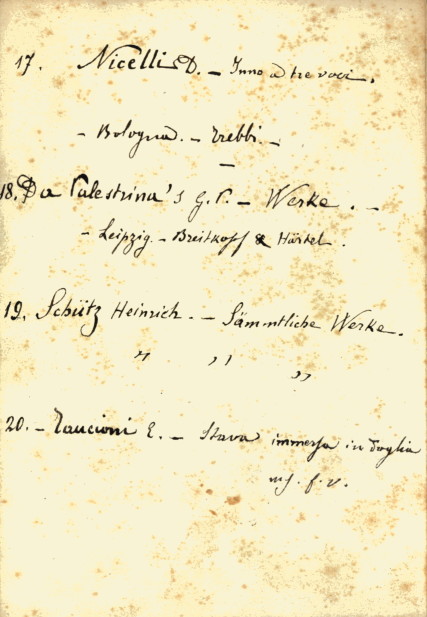 17. Nicelli D. – Inno a tre voci.
– Bologna. – Trebbi. –
–
18. Da Palestrina's G. P. – Werke. –
– Leipzig. – Breitkopf & Härtel.
19. Schütz Heinrich. – Sämmtliche Werke.
" " "
20. – Taucioni E. – Stava immersa in doglia
ms. f. v.